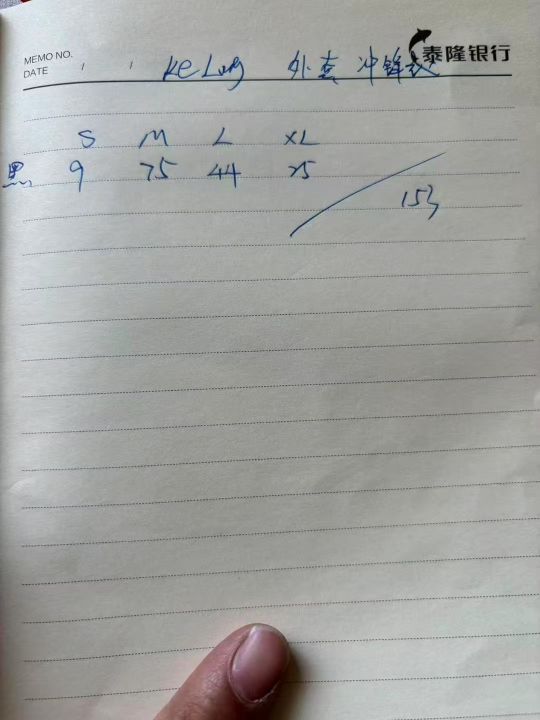 泰隆银行
MEMO NO.
DATE / /
KeLong 外套 冲锋衣
S M L XL
黑 9 75 44 25
153